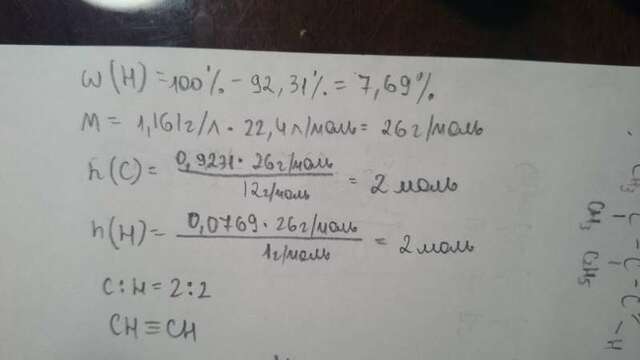 ω(H) = 100% - 92,31% = 7,69%
M = 1,161г/л · 22,4л/моль = 26г/моль
n(C) = 0,9231 · 26г/моль / 12г/моль = 2 моль
n(H) = 0,0769 · 26г/моль / 1г/моль = 2 моль
C:H = 2:2
CH≡CH
CH3
- C - C - C - H
CH3 C2H5